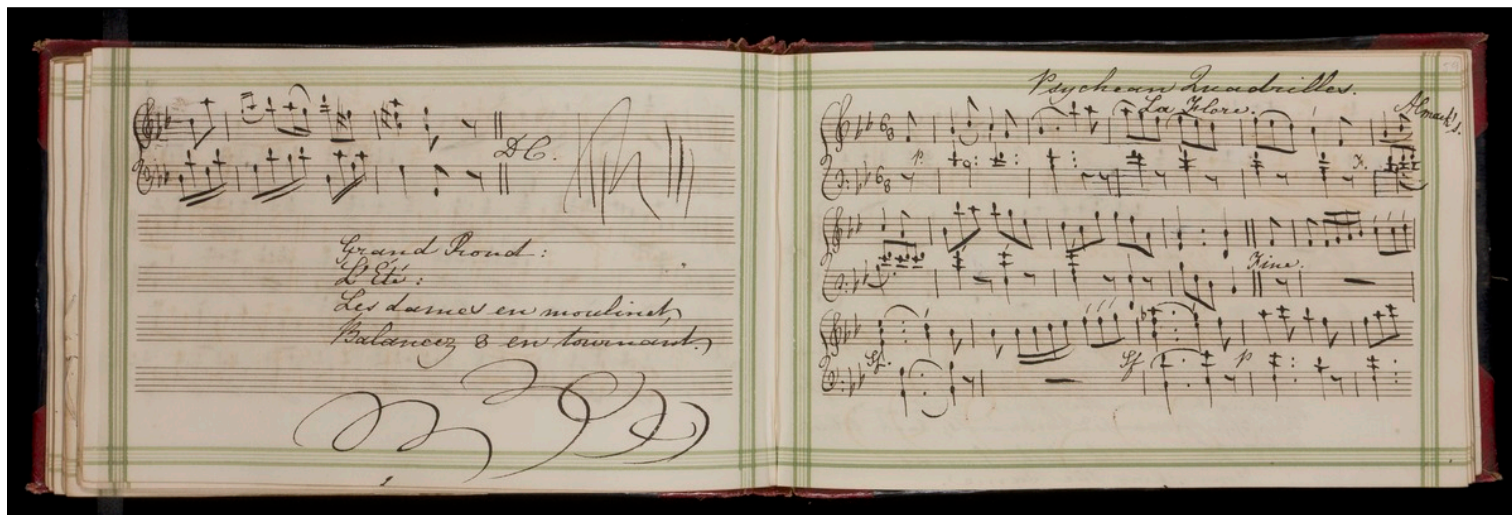 D.C.
Grand Rond:
L'Eté:
Les dames en moulinet,
Balancez 8 en tournant.
Psychean Quadrilles.
La Flore.
Almack's.
6/8
p.
6/8
Fine.
Sf.
Sf
p